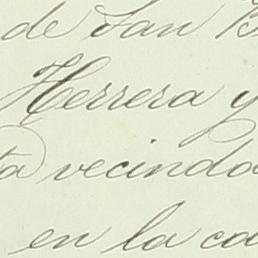 de San B
Herrera y
ta vecinda
en la ca